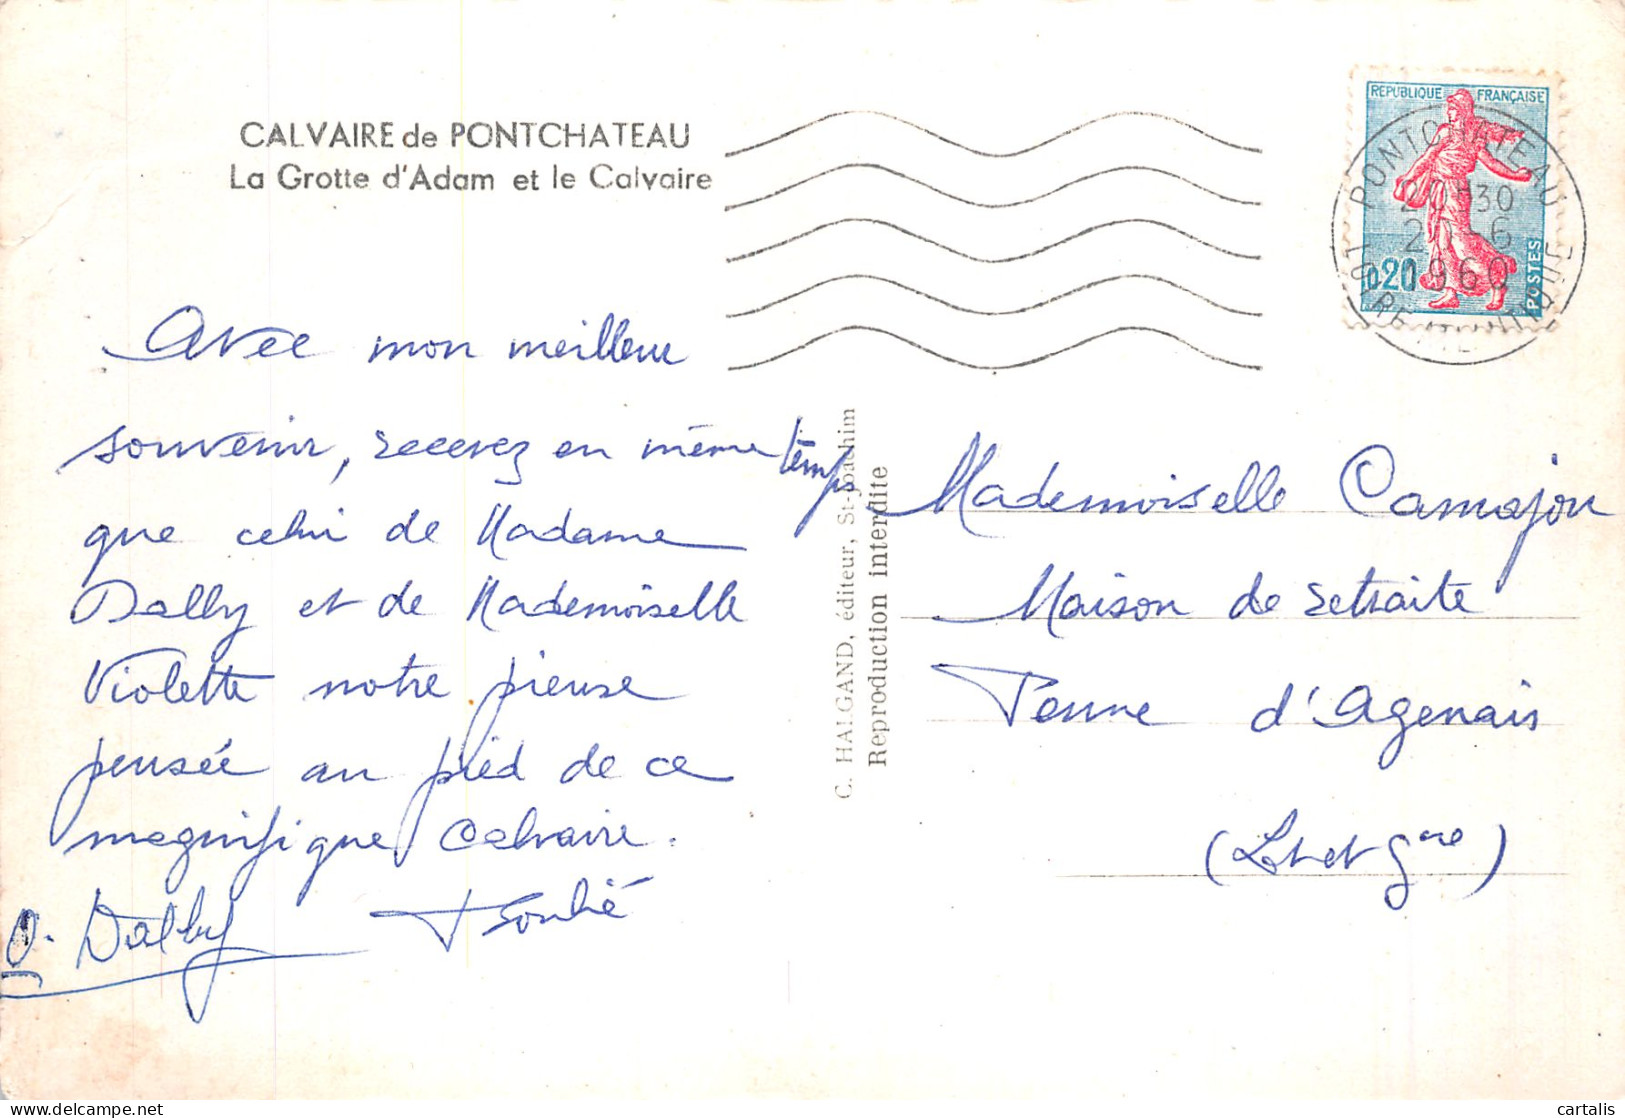 CALVAIRE de PONTCHATEAU
La Grotte d'Adam et le Calvaire
REPUBLIQUE FRANÇAISE
0,20
POSTES
PONTCHATEAU
20H30
2 - 6
1960
LOIRE ATLANTIQUE
Avec mon meilleur
souvenir, recevez en même temps
que celui de Madame
Dalby et de Mademoiselle
Violette notre pieuse
pensée au pied de ce
magnifique Calvaire.
O. Dalby
C. HALGAND, éditeur, St-Joachim
Reproduction interdite
Mademoiselle Camajou
Maison de retraite
Penne d'Agenais
(Lot et Gne)
cartalis
delcampe.net